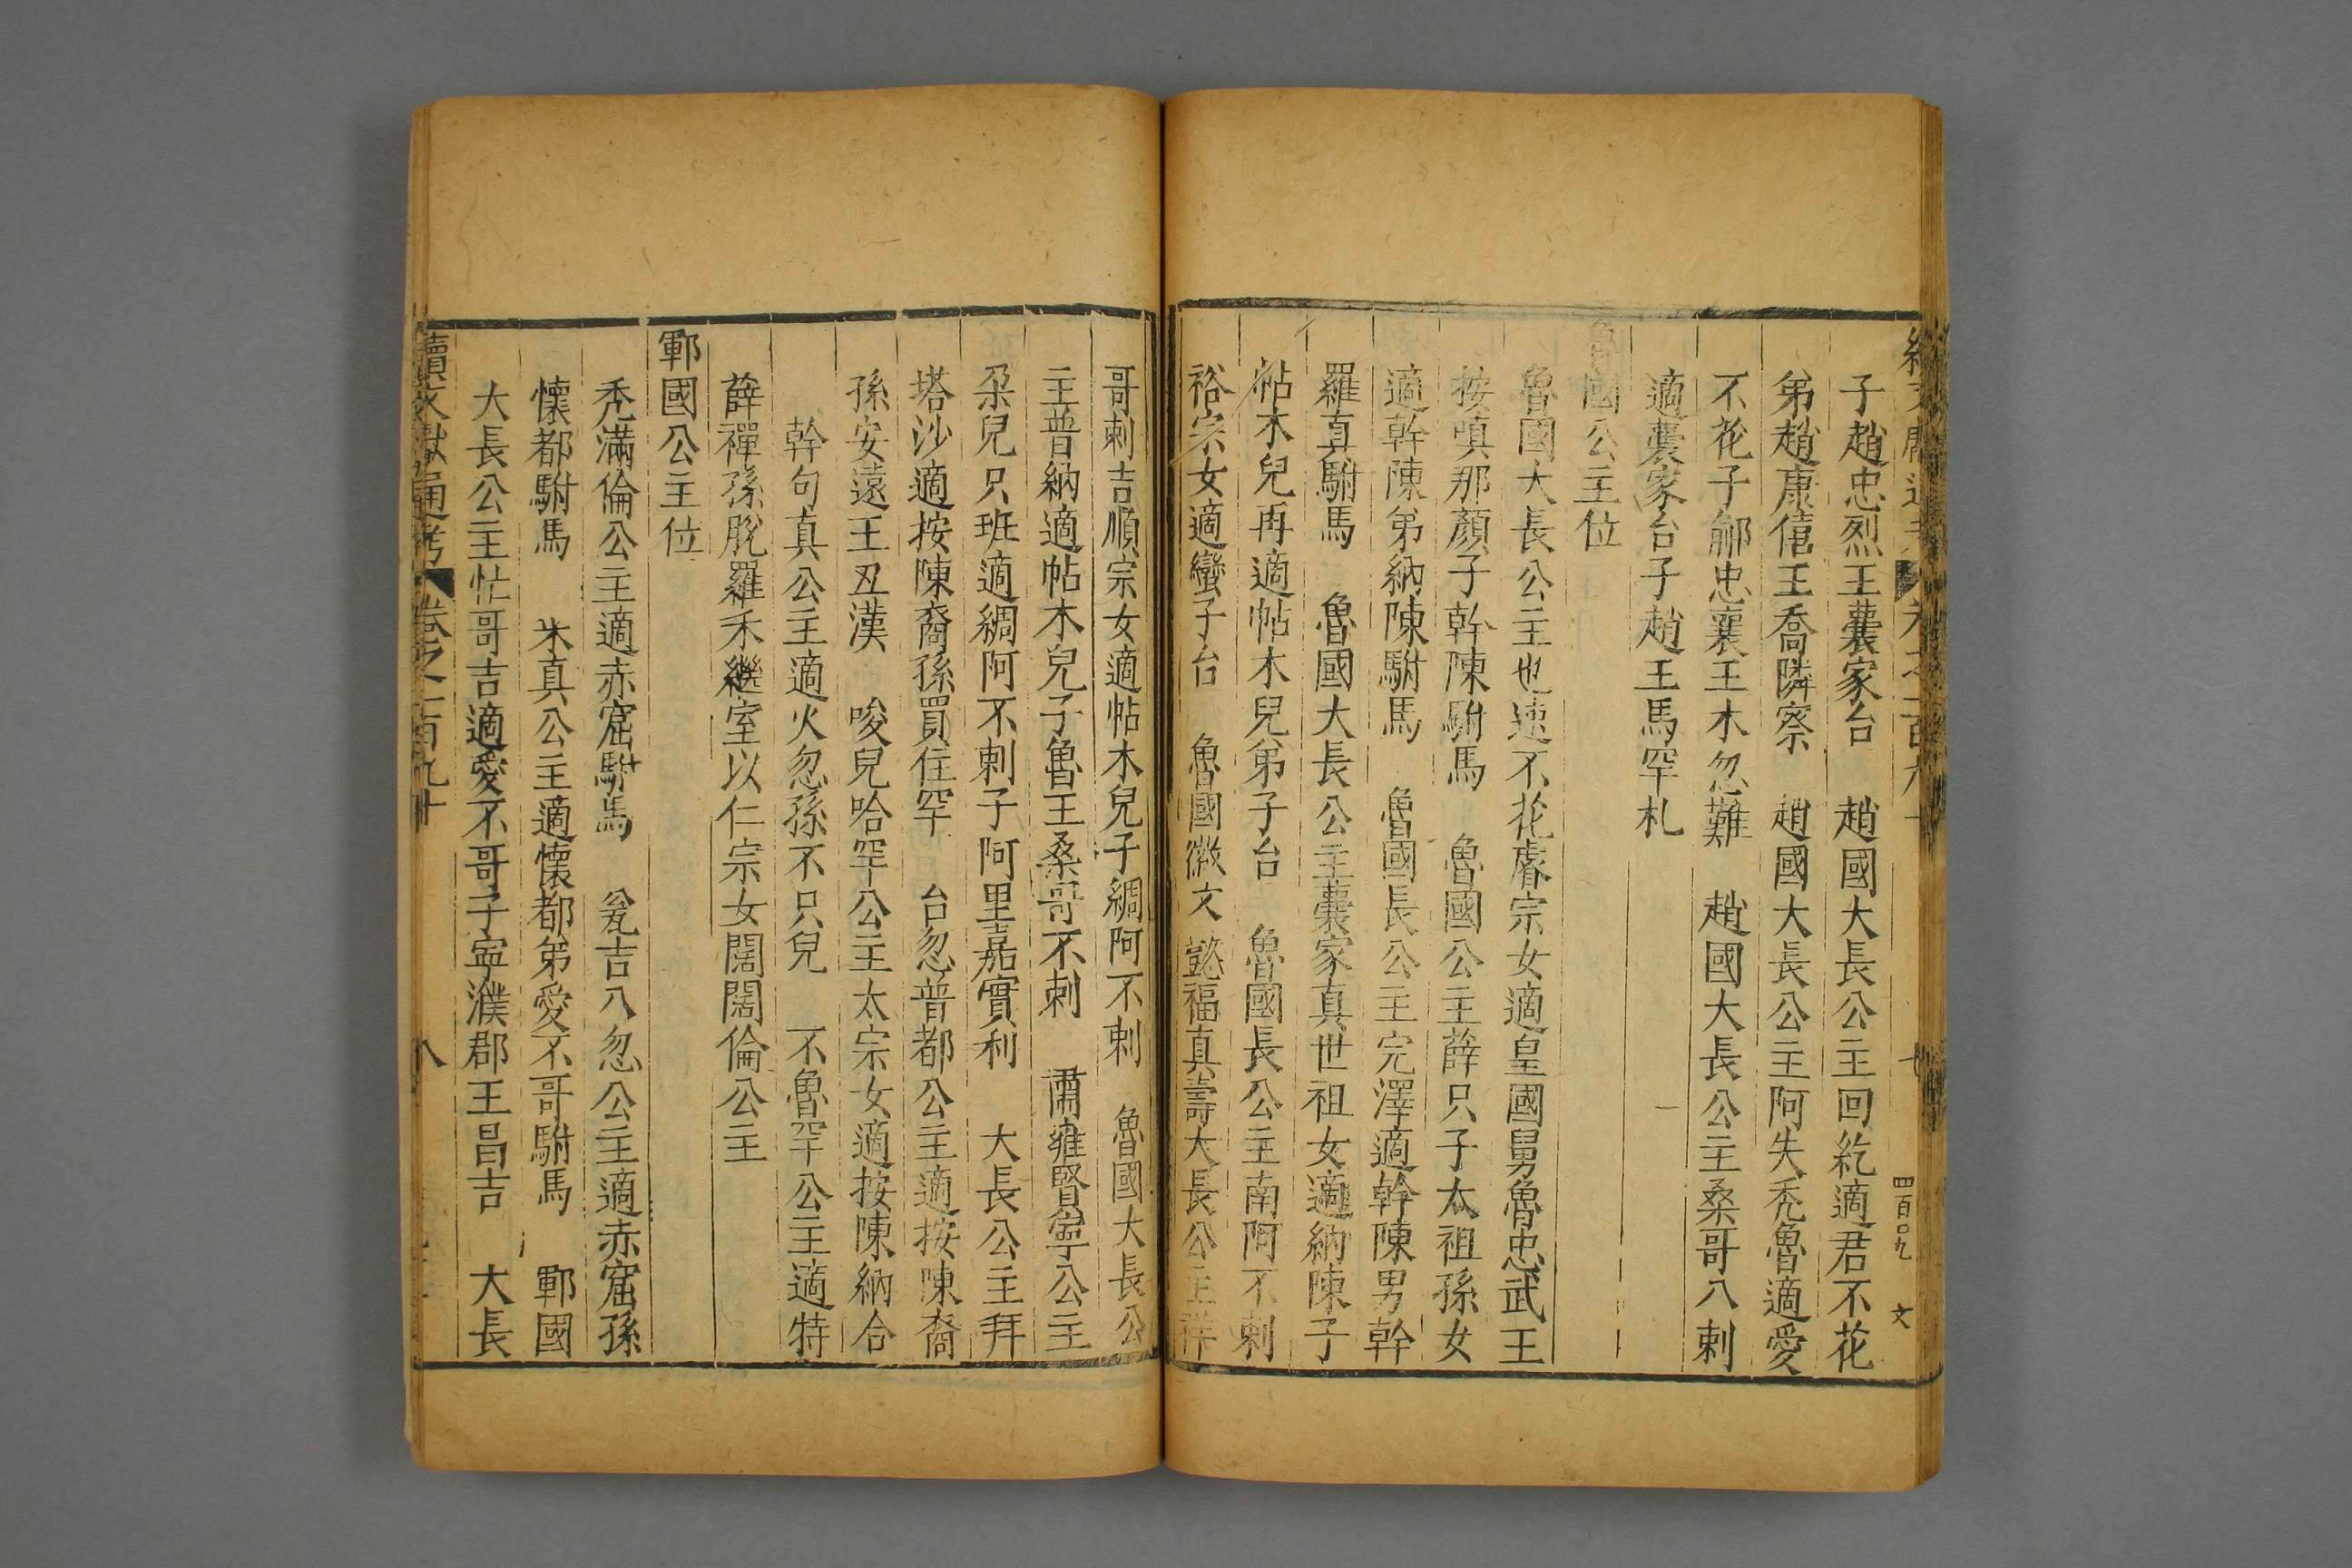 子趙忠烈王囊家台　趙國大長公主回紇適君不花
弟趙康僖王喬隣察　趙國大長公主阿失禿魯適愛
不花子鄃忠襄王木忽難　趙國大長公主桑哥八剌
適囊家台子趙王馬罕札
魯國公主位
魯國大長公主也速不花睿宗女適皇國舅魯忠武王
按嗔那顏子幹陳駙馬　魯國公主薛只子太祖孫女
適幹陳弟納陳駙馬　魯國長公主完澤適幹陳男幹
羅真駙馬　魯國大長公主囊家真世祖女適納陳子
帖木兒再適帖木兒弟子台　魯國長公主南阿不剌
裕宗女適蠻子台　魯國徽文懿福真壽大長公主祥
哥剌吉順宗女適帖木兒子綢阿不剌　魯國大長公
主普納適帖木兒子魯王桑哥不剌　肅雍賢寧公主
朶兒只班適綢阿不剌子阿里嘉實利　大長公主拜
塔沙適按陳裔孫買住罕　台忽普都公主適按陳裔
孫安遠王丑漢　唆兒哈罕公主太宗女適按陳納合
幹句真公主適火忽孫不只兒　不魯罕公主適特
薛禪孫脫羅禾繼室以仁宗女闊闊倫公主
鄆國公主位
禿滿倫公主適赤窟駙馬　瓮吉八忽公主適赤窟孫
懷都駙馬　米真公主適懷都弟愛不哥駙馬　鄆國
大長公主忙哥吉適愛不哥子寧濮郡王昌吉　大長
續文獻通考　卷之二百九十　八
四百〇九　文